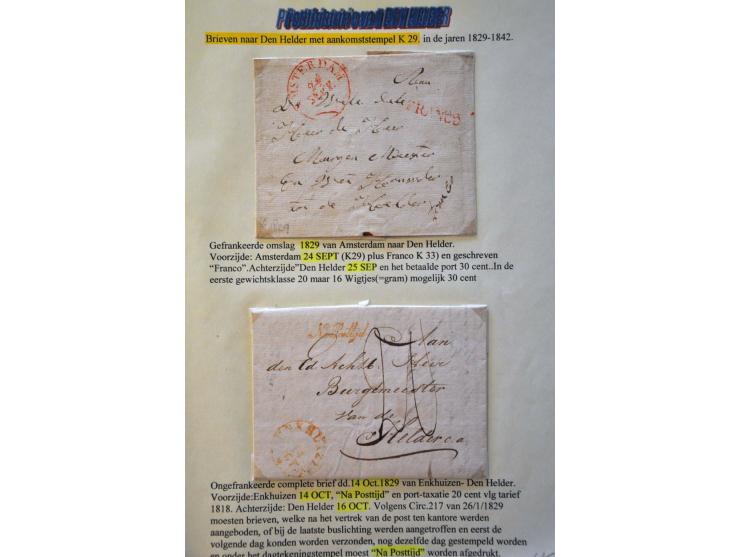 Posthistorie van DEN HELDER
Brieven naar Den Helder met aankomststempel K 29. in de jaren 1829-1842.
AMSTERDAM
24
SEPT
Aan
FRANCO
Heer de Heer
1829
Gefrankeerde omslag 1829 van Amsterdam naar Den Helder.
Voorzijde: Amsterdam 24 SEPT (K29) plus Franco K 33) en geschreven
“Franco”.Achterzijde”Den Helder 25 SEP en het betaalde port 30 cent..In de
eerste gewichtsklasse 20 maar 16 Wigtjes(=gram) mogelijk 30 cent
Na Posttijd
Aan
den Ed Achtb. Heer
Burgemeester
van de
Helder c.a.
ENKHUIZEN
Ongefrankeerde complete brief dd.14 Oct.1829 van Enkhuizen- Den Helder.
Voorzijde:Enkhuizen 14 OCT, “Na Posttijd” en port-taxatie 20 cent vlg tarief
1818. Achterzijde: Den Helder 16 OCT. Volgens Circ.217 van 26/1/1829
moesten brieven, welke na het vertrek van de post ten kantore werden
aangeboden, of bij de laatste buslichting werden aangetroffen en eerst de
volgende dag konden worden verzonden, nog dezelfde dag gestempeld worden
en onder het dagtekeningstempel moest “Na Posttijd” worden afgedrukt.